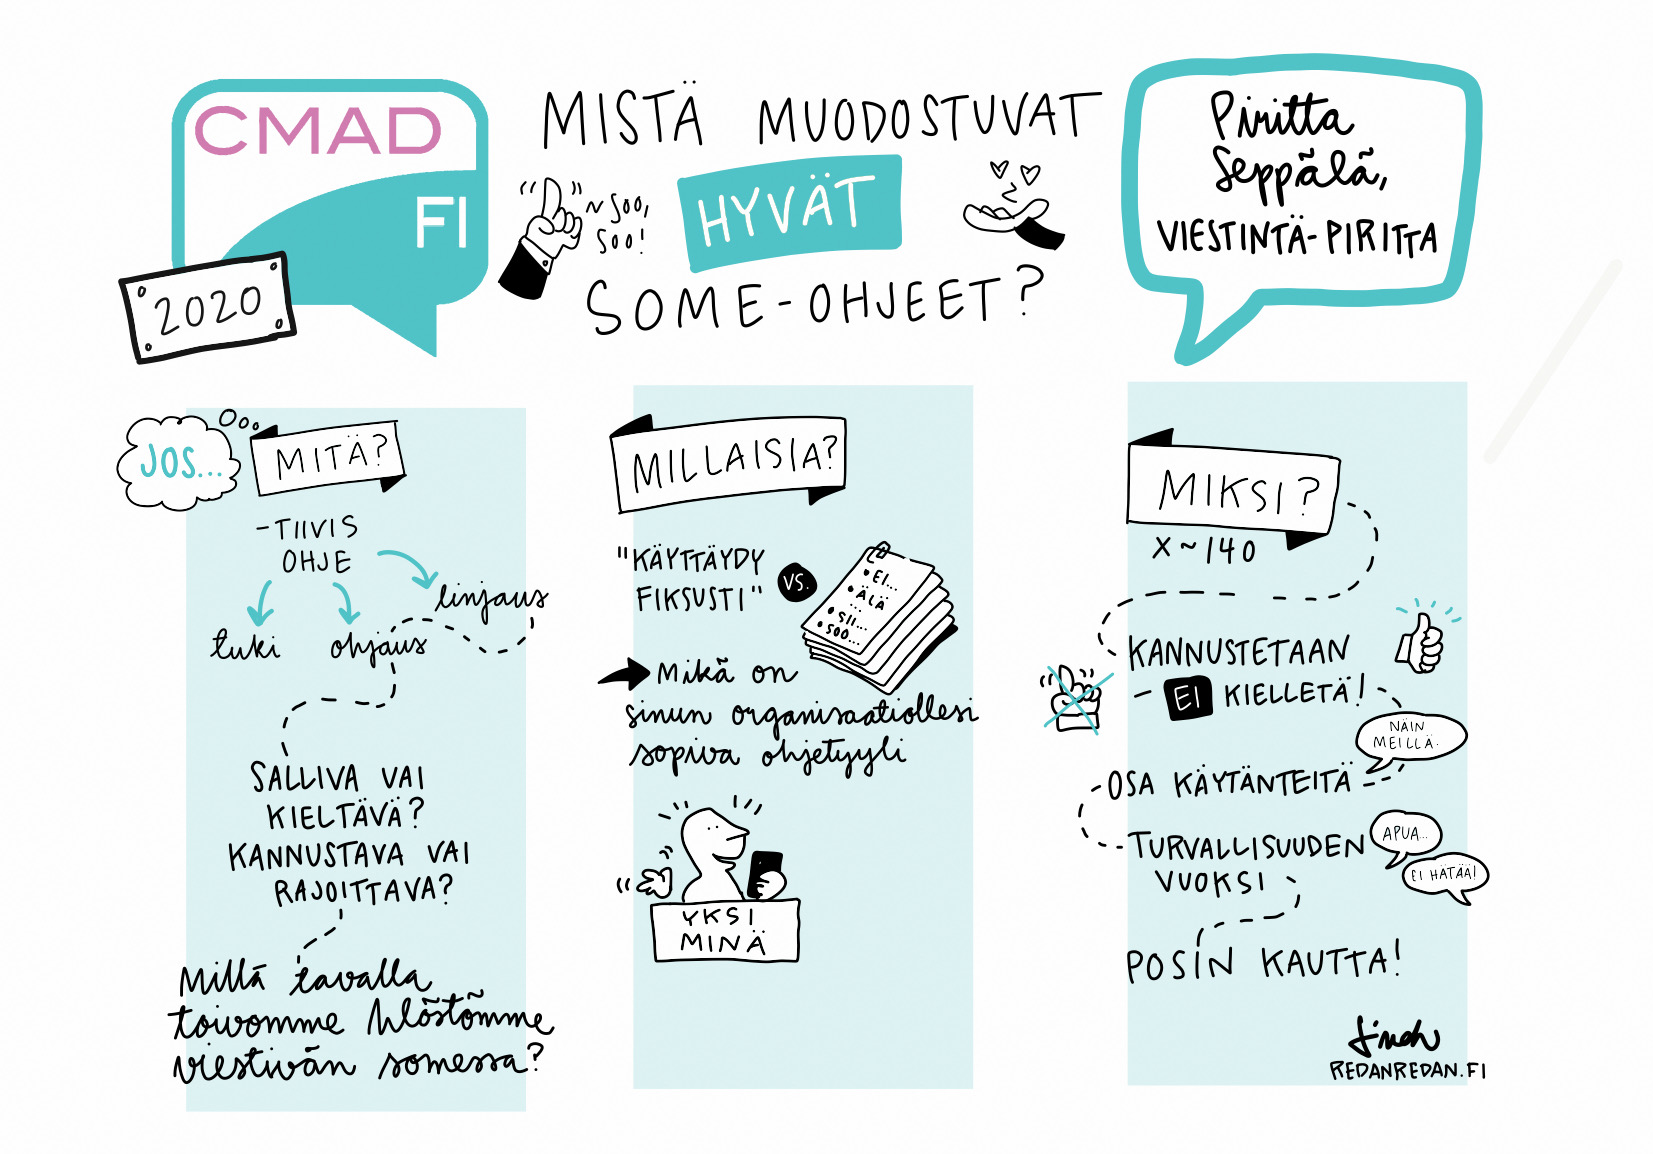 CMAD
FI
2020
MISTÄ MUODOSTUVAT
HYVÄT
SOME-OHJEET?
~ SOO,
SOO!
Piritta
Seppälä,
VIESTINTÄ-PIRITTA
JOS...
MITÄ?
-TIIVIS
OHJE
linjaus
tuki
ohjaus
SALLIVA VAI
KIELTÄVÄ?
KANNUSTAVA VAI
RAJOITTAVA?
Millä tavalla
toivomme hlöstömme
viestivän somessa?
MILLAISIA?
"KÄYTTÄYDY
FIKSUSTI"
VS.
•EI...
•ÄLÄ
...
•SII...
•SOO...
Mikä on
sinun organisaatiollesi
sopiva ohjetyyli
YKSI
MINÄ
MIKSI?
X ~140
KANNUSTETAAN
- EI KIELLETÄ!
NÄIN
MEILLÄ.
OSA KÄYTÄNTEITÄ
TURVALLISUUDEN
VUOKSI
APUA...
EI HÄTÄÄ!
POSIN KAUTTA!
REDANREDAN.FI